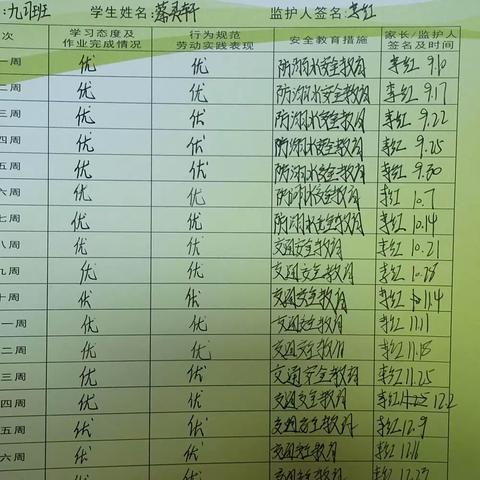 :九班 学生姓名: 轩 监护人签名: 李红
次 学习态度及作业完成情况 行为规范劳动实践表现 安全教育措施 家长/监护人签名及时间
一周 优 优 防溺水安全教育 李红 9.10
二周 优 优 防溺水安全教育 李红 9.17
三周 优 优 防溺水安全教育 李红 9.22
四周 优 优 防溺水安全教育 李红 9.25
五周 优 优 防溺水安全教育 李红 9.30
六周 优 优 防溺水安全教育 李红 10.7
七周 优 优 防溺水安全教育 李红 10.14
八周 优 优 交通安全教育 李红 10.21
九周 优 优 交通安全教育 李红 10.28
十周 优 优 交通安全教育 李红 11.4
一周 优 优 交通安全教育 李红 11.11
二周 优 优 交通安全教育 李红 11.18
三周 优 优 交通安全教育 李红 11.25
四周 优 优 交通安全教育 李红 12.2
五周 优 优 交通安全教育 李红 12.9
六周 优 优 交通安全教育 李红 12.16
优 优 交通安全教育 李红 12.23